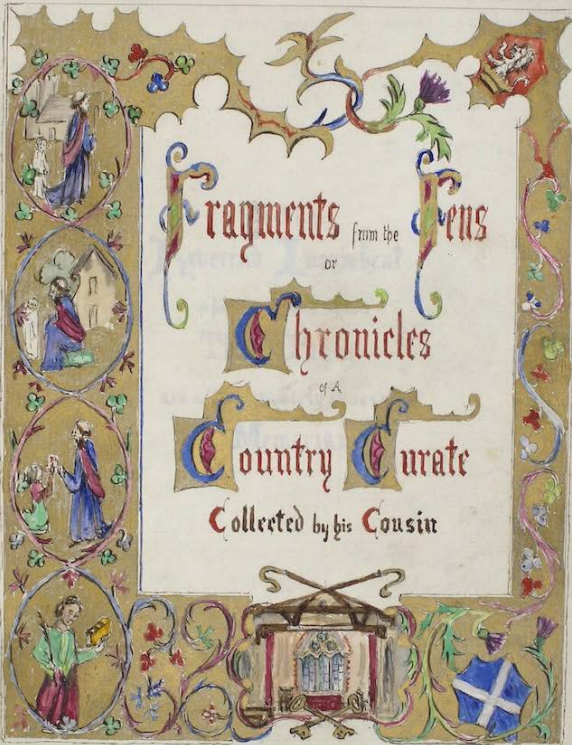 Fragments from the Fens
or
Chronicles
of A
Country Curate
Collected by his Cousin